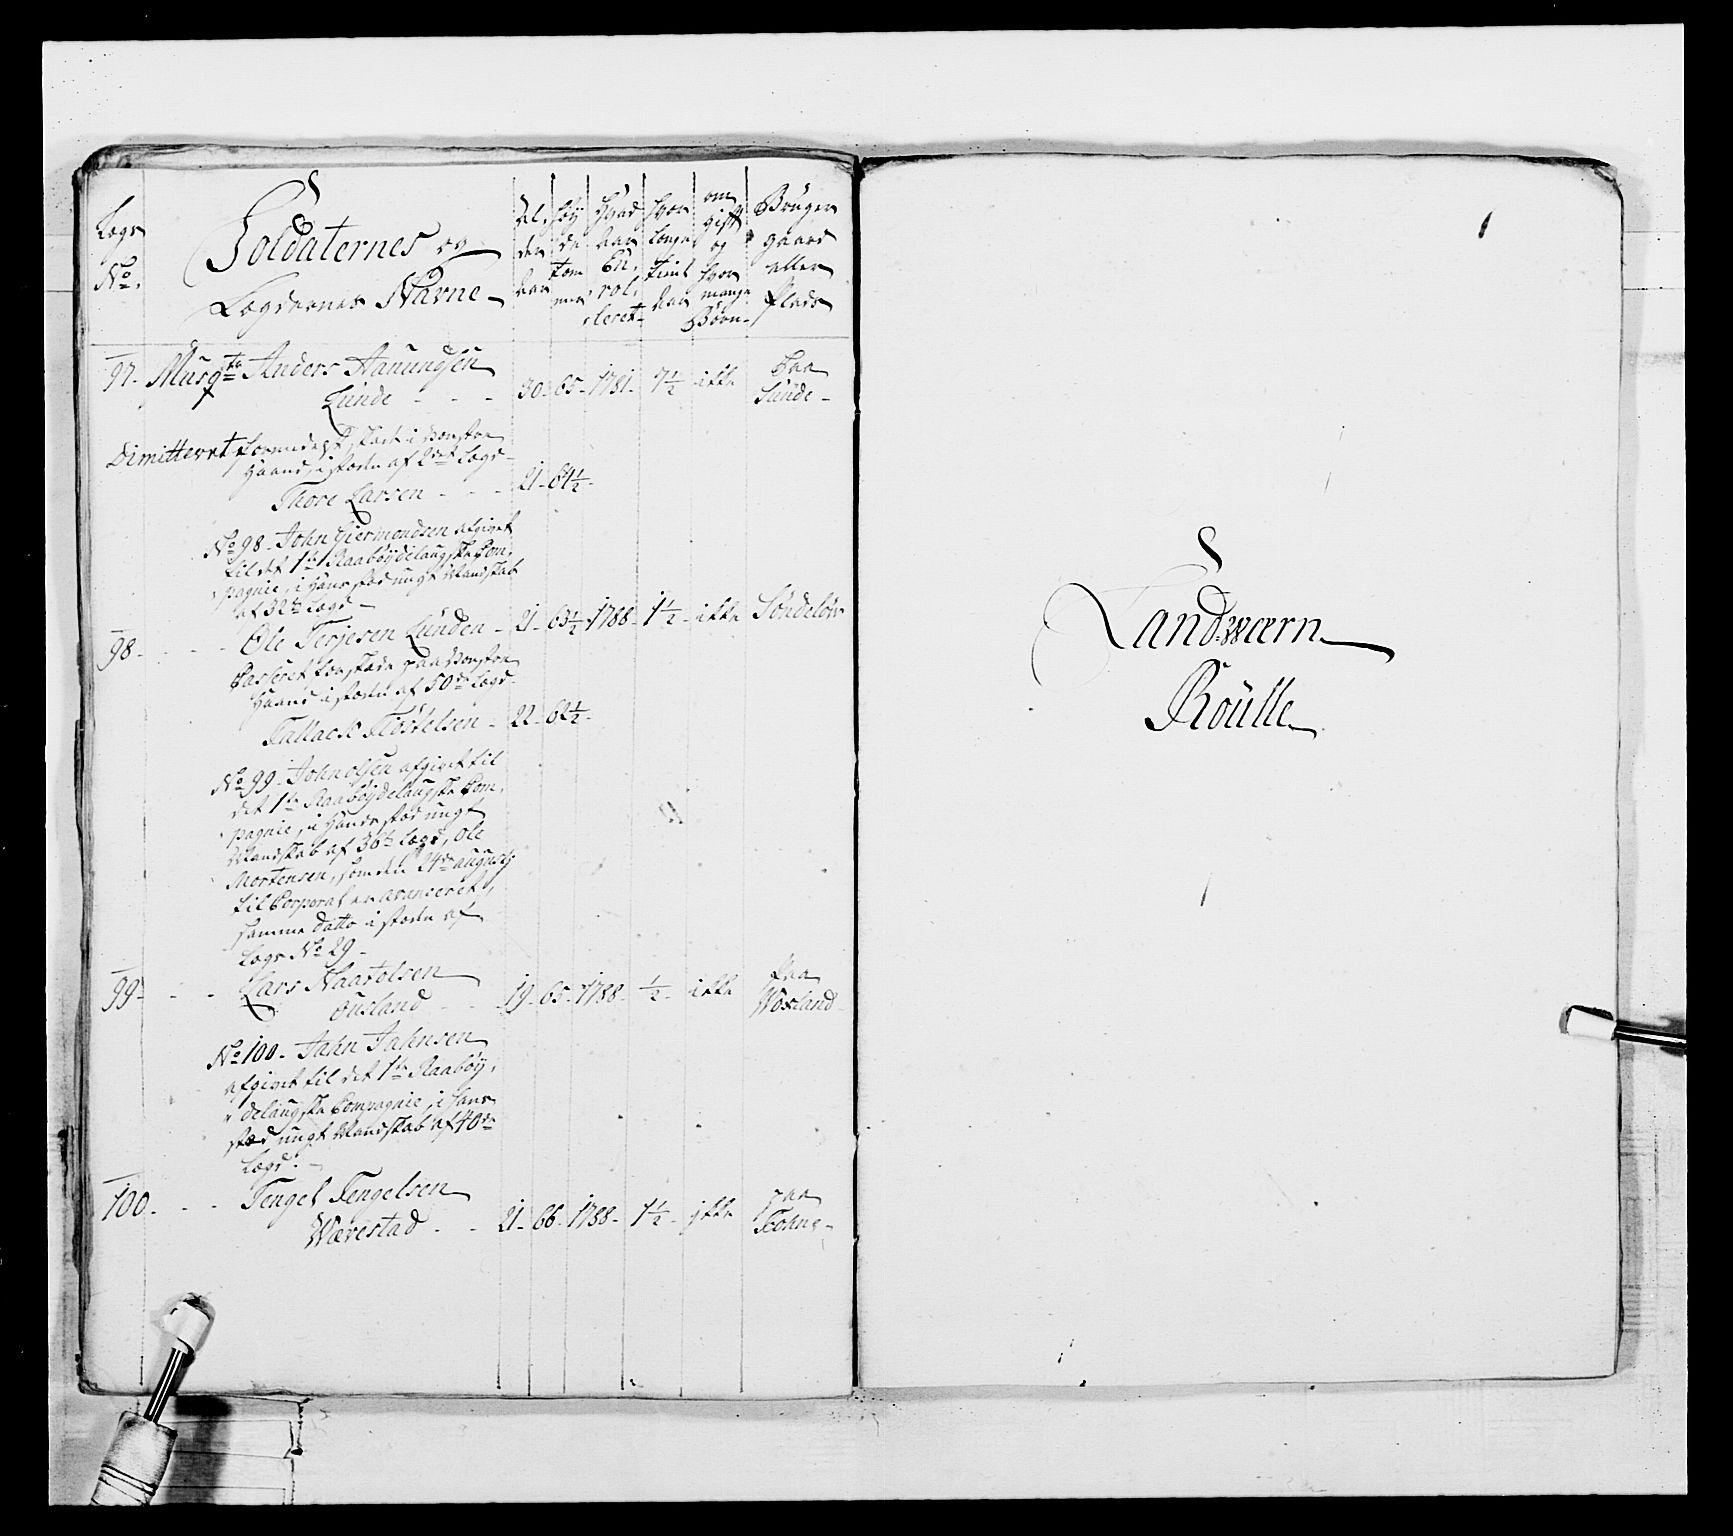 Lægs
No.
Soldaternes og
Lægdernes Navne
Al,
der
Høy
de
Tom
mer
Hvad
Aar
En,
rol,
leret
Hvor
længe
tient
har
om
gift
og
hvor
mange
Børn
Bruger
gaard
eller
Plads
97. Musqte Anders Aanundsen
Lunde - - - 30 - 65 - 1781 - 7 1/2 ikke Paa Lunde -
Dimitteret formedelst skade i venstre
Haand, i stæden af 2det Lægd
Thore Larsen - - - 21 - 64 1/2 -
No 98. John Giermundsen afgivet
til det 1te Raabøydelaugske Com,
pagnie, i Hans stæd ungt Mandskab
af 32te Lægd
98 - - - - Ole Terjesen Lunden - 21 - 63 1/2 - 1788 - 1 1/2 - ikke Søndeløv
Casseret for skade paa venstre
Haand i stæden af 50de Lægd
Tallack - 22 - 62 1/2 -
No 99. John Olsen afgivet til
det 1te Raabøydelaugske Com,
pagnie, i Hans stæd ungt
Mandskab af 36te Lægd, Ole
Mortensen, som den 24de august
til Corporal er avanceret,
samme Datto i stæden af
Lægd No 29 -
99 - - - Lars Naarvelsen
Ousland - - 19 - 65 - 1788 - 1/2 - ikke paa Woxland
No 100. Jahn Jahnsen
afgivet til det 1te Raabøy,
delaugske Compagnie, i Hans
stæd ungt Mandskab af 40de
Lægd. -
100. - - Tengel Tengelsen
Wærestad - - 21 - 66 - 1788 - 1 1/2 - ikke paa
Landwærn
Roulle